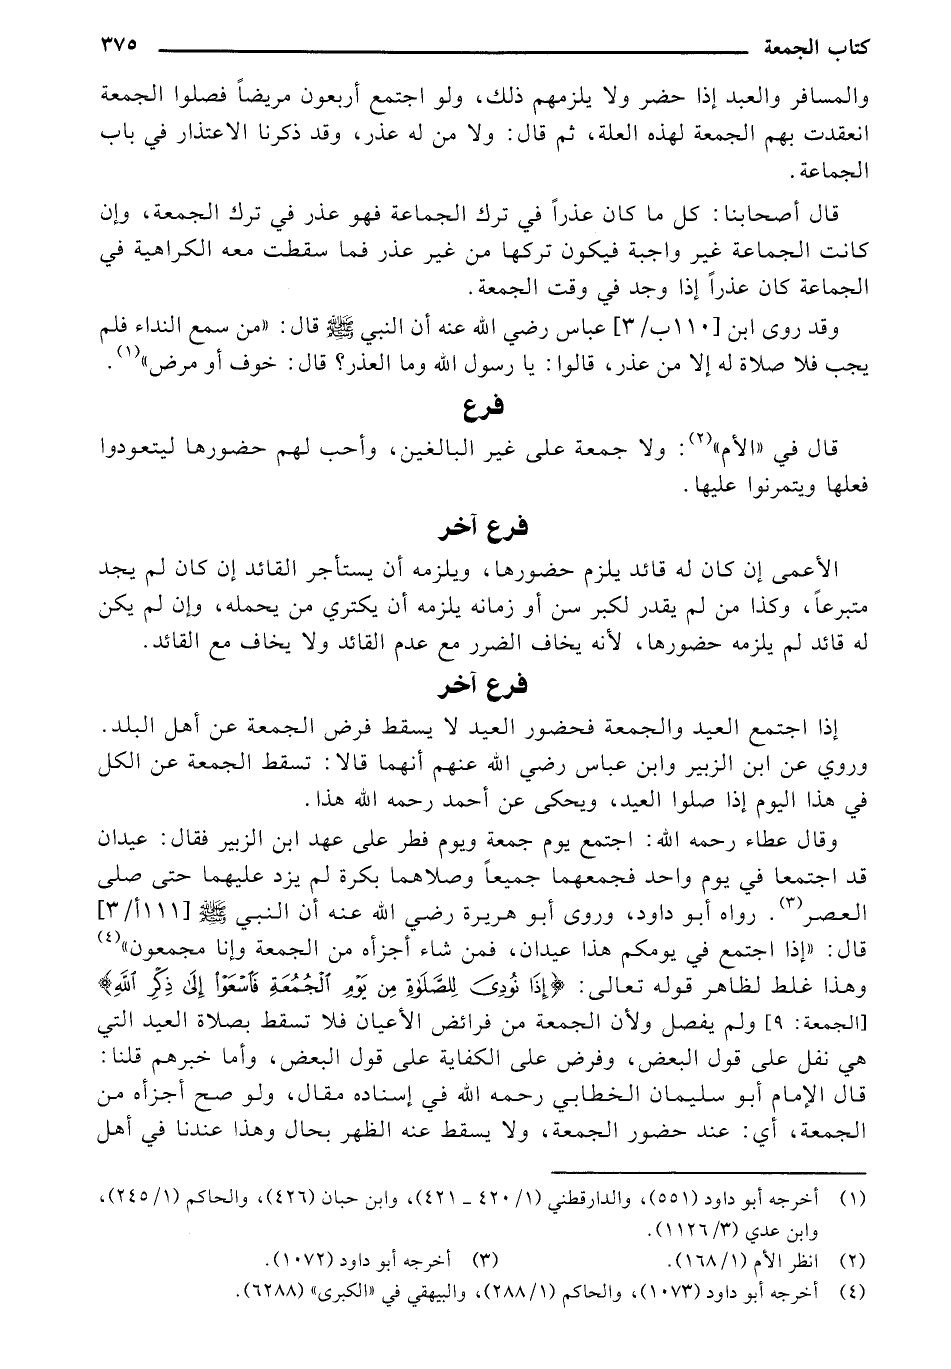 كتاب الجمعة ٣٧٥
والمسافر والعبد إذا حضر ولا يلزمهم ذلك، ولو اجتمع أربعون مريضاً فصلوا الجمعة
انعقدت بهم الجمعة لهذه العلة، ثم قال: ولا من له عذر، وقد ذكرنا الاعتذار في باب
الجماعة.
قال أصحابنا: كل ما كان عذراً في ترك الجماعة فهو عذر في ترك الجمعة، وإن
كانت الجماعة غير واجبة فيكون تركها من غير عذر فما سقطت معه الكراهية في
الجماعة كان عذراً إذا وجد في وقت الجمعة.
وقد روى ابن [١١٠ب/ ٣] عباس رضي الله عنه أن النبي ﷺ قال: «من سمع النداء فلم
يجب فلا صلاة له إلا من عذر، قالوا: يا رسول الله وما العذر؟ قال: خوف أو مرض»(١).
فرع
قال في «الأم»(٢): ولا جمعة على غير البالغين، وأحب لهم حضورها ليتعودوا
فعلها ويتمرنوا عليها.
فرع آخر
الأعمى إن كان له قائد يلزم حضورها، ويلزمه أن يستأجر القائد إن كان لم يجد
متبرعاً، وكذا من لم يقدر لكبر سن أو زمانه يلزمه أن يكتري من يحمله، وإن لم يكن
له قائد لم يلزمه حضورها، لأنه يخاف الضرر مع عدم القائد ولا يخاف مع القائد.
فرع آخر
إذا اجتمع العيد والجمعة فحضور العيد لا يسقط فرض الجمعة عن أهل البلد.
وروي عن ابن الزبير وابن عباس رضي الله عنهم أنهما قالا: تسقط الجمعة عن الكل
في هذا اليوم إذا صلوا العيد، ويحكى عن أحمد رحمه الله هذا.
وقال عطاء رحمه الله: اجتمع يوم جمعة ويوم فطر على عهد ابن الزبير فقال: عيدان
قد اجتمعا في يوم واحد فجمعهما جميعاً وصلاهما بكرة لم يزد عليهما حتى صلى
العصر(٣). رواه أبو داود، وروى أبو هريرة رضي الله عنه أن النبي ﷺ [١١١أ/ ٣]
قال: «إذا اجتمع في يومكم هذا عيدان، فمن شاء أجزأه من الجمعة وإنا مجمعون»(٤)
وهذا غلط لظاهر قوله تعالى: ﴿إِذَا نُودِيَ لِلصَّلَوٰةِ مِن يَوْمِ ٱلْجُمُعَةِ فَٱسْعَوْا۟ إِلَىٰ ذِكْرِ ٱللَّهِ﴾
[الجمعة: ٩] ولم يفصل ولأن الجمعة من فرائض الأعيان فلا تسقط بصلاة العيد التي
هي نفل على قول البعض، وفرض على الكفاية على قول البعض، وأما خبرهم قلنا:
قال الإمام أبو سليمان الخطابي رحمه الله في إسناده مقال، ولو صح أجزأه من
الجمعة، أي: عند حضور الجمعة، ولا يسقط عنه الظهر بحال وهذا عندنا في أهل
(١) أخرجه أبو داود (٥٥١)، والدارقطني (١/ ٤٢٠ ـ ٤٢١)، وابن حبان (٤٢٦)، والحاكم (١/ ٢٤٥)،
وابن عدي (٣/ ١١٢٦).
(٢) انظر الأم (١/ ١٦٨). (٣) أخرجه أبو داود (١٠٧٢).
(٤) أخرجه أبو داود (١٠٧٣)، والحاكم (١/ ٢٨٨)، والبيهقي في «الكبرى» (٦٢٨٨).